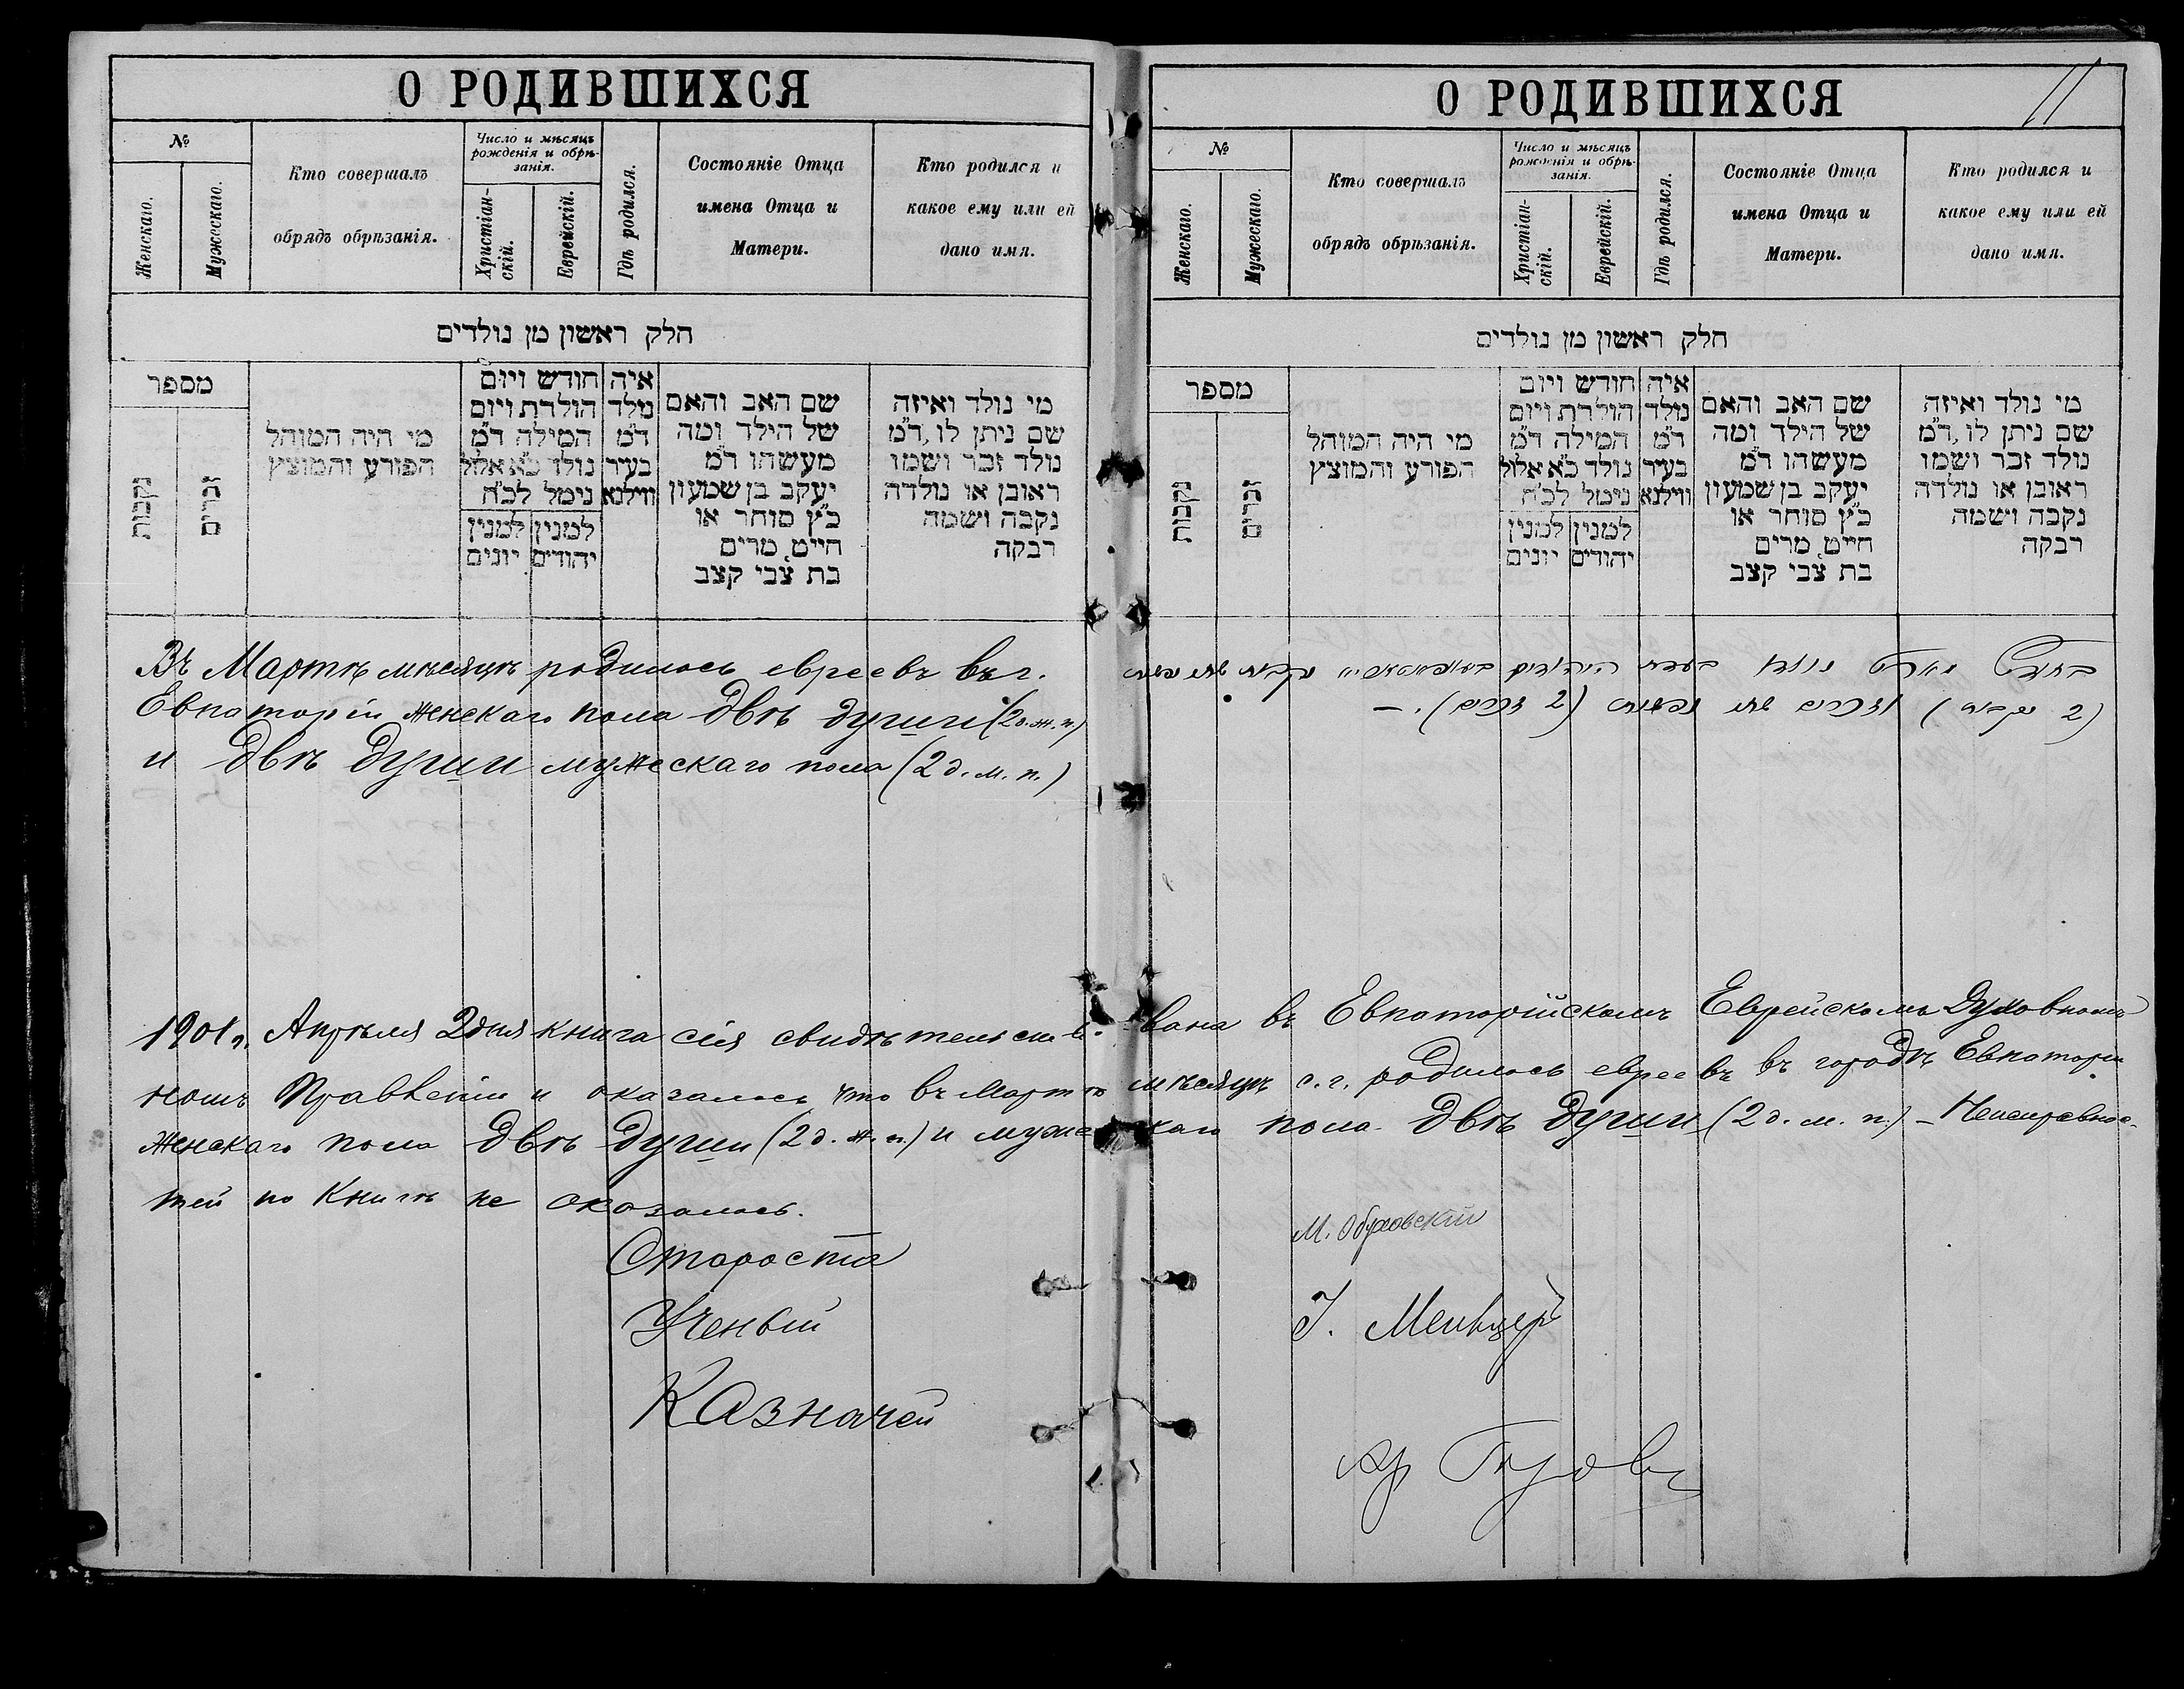 О РОДИВШИХСЯ
№
Женскаго.
Мужескаго.
Кто совершалъ
обрядъ обрѣзанія.
Число и мѣсяцъ
рожденія и обрѣ-
занія.
Христіан-
скій.
Еврейскій.
Гдѣ родился.
Состояніе Отца
имена Отца и
Матери.
Кто родился и
какое ему или ей
дано имя.
חלק ראשון מן נולדים
מספר
נקבות
זכרים
מי היה המוהל
הפורע והמוצץ
חודש ויום
הולדת ויום
המילה ד״מ
נולד כ״א אלול
נימל לכ״ח
למנין יונים
למנין יהודים
איה
נולד
ד״מ
בעיר
ווילנא
שם האב והאם
של הילד ומה
מעשהו ד״מ
יעקב בן שמעון
כ״ץ סוחר או
חייט, מרים
בת צבי קצב
מי נולד ואיזה
שם ניתן לו, ד״מ
נולד זכר ושמו
ראובן או נולדה
נקבה ושמה
רבקה
Въ Мартѣ мѣсяцѣ родилось евреевъ въ г.
Евпаторіи женскаго пола двѣ души (2 д. ж. п.)
и двѣ души мужескаго пола (2 д. м. п.)
О РОДИВШИХСЯ
11
№
Женскаго.
Мужескаго.
Кто совершалъ
обрядъ обрѣзанія.
Число и мѣсяцъ
рожденія и обрѣ-
занія.
Христіан-
скій.
Еврейскій.
Гдѣ родился.
Состояніе Отца
имена Отца и
Матери.
Кто родился и
какое ему или ей
дано имя.
חלק ראשון מן נולדים
מספר
נקבות
זכרים
מי היה המוהל
הפורע והמוצץ
חודש ויום
הולדת ויום
המילה ד״מ
נולד כ״א אלול
נימל לכ״ח
למנין יונים
למנין יהודים
איה
נולד
ד״מ
בעיר
ווילנא
שם האב והאם
של הילד ומה
מעשהו ד״מ
יעקב בן שמעון
כ״ץ סוחר או
חייט, מרים
בת צבי קצב
מי נולד ואיזה
שם ניתן לו, ד״מ
נולד זכר ושמו
ראובן או נולדה
נקבה ושמה
רבקה
בחדש מארט נולדו היהודים נקבות שתי נפשות
(2 נקבות) וזכרים שתי נפשות (2 זכרים). –
1901 г. Апрѣля 2 дня книга сія свидѣтельство- вана въ Евпаторійскомъ Еврейскомъ Духовномъ
номъ Правленіи и оказалось что въ Мартѣ мѣсяцѣ с. г. родилось евреевъ въ городѣ Евпаторіи
женскаго пола двѣ души (2 д. ж. п.) и мужескаго пола двѣ души (2 д. м. п.) – Неисправнос-
тей по книгѣ не оказалось.
Староста М. Обуховскій
Ученый I. Менцеръ
Казначей